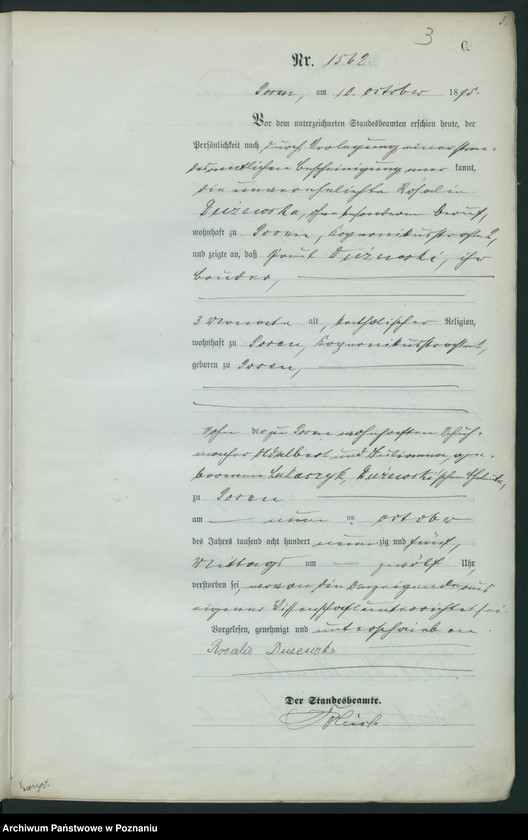 3
C.
Nr. 1562
Posen, am 10. October 1895.
Vor dem unterzeichneten Standesbeamten erschien heute, der
Persönlichkeit nach durch Vorlegung einer stan-
desamtlichen Bescheinigung aner kannt,
die unverehelichte Rosalie
ohne besonderen Beruf,
wohnhaft zu Posen,
und zeigte an, daß Paul ihr
Bruder,
3 Monate alt, katholischer Religion,
wohnhaft zu Posen,
geboren zu Posen,
Sohn der zu Posen wohnhaften Schuh-
macher Adalbert und ge-
borenen 
zu Posen
am neun ten October
des Jahres tausend acht hundert neun zig und fünf,
Mittags um zwölf Uhr,
verstorben sei, wovon die Anzeigende aus
eigener Wissenschaft unterrichtet sei.
Vorgelesen, genehmigt und unterschrieben
Rosalie
Der Standesbeamte.
Archiwum Państwowe w Poznaniu